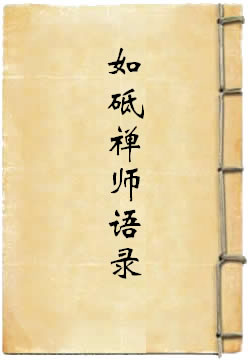 如砥禅师语录